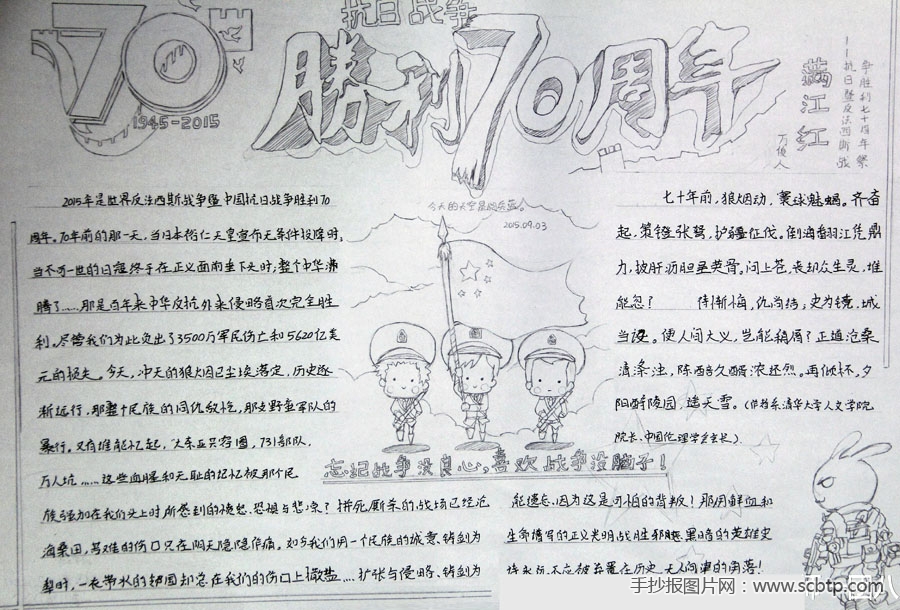 70
1945-2015
抗日战争
勝利70周年
满江红
——抗日暨反法西斯战
争胜利七十周年祭
万俊人
2015年是世界反法西斯战争暨中国抗日战争胜利70
周年。70年前的那一天,当日本裕仁天皇宣布无条件投降时,
当不可一世的日寇终于在正义面前垂下头时,整个中华沸
腾了……那是百年来中华反抗外来侵略首次完全胜
利。尽管我们为此负出了3500万军民伤亡和5620亿美
元的损失。今天,冲天的狼烟已尘埃落定,历史逐
渐远行,那整个民族的同仇敌忾,那支野蛮军队的
暴行。又有谁能忆起,大东亚共容圈,731部队,
万人坑……这些血腥和无耻的记忆被那个民
族强加在我们头上时所感到的愤怒、恐惧与悲凉?拼死厮杀的战场已经沧
海桑田,苦难的伤口只在阴天隐隐作痛。如今我们用一个民族的诚意、铸剑为
犁时,一衣带水的邻国却总在我们的伤口上撒盐……扩张与侵略、铸剑为
今天的天空是鸽灰蓝。
2015.09.03
忘记战争没良心,喜欢战争没脑子!
七十年前,狼烟动,寰球魅蝎。齐奋
起,策镫张弩,护疆征伐。倒海翻江凭鼎
力,披肝沥胆垂英骨。问上苍,丧却众生灵,谁
能忽?
待新悔,仇尚结;史为镜,城
当设。使人间大义,岂能稍屑?正道沧桑
清涤浊,陈酒久酿浓还烈。再倾杯,夕
阳醉陵园,建天雪。(作者系清华大学人文学院
院长、中国伦理学会会长)
能遗忘,因为这是可怕的背叛!那用鲜血和
生命博写的正义光明战胜邪恶黑暗的英雄史
诗永远不应被弃置在历史无人问津的角落!
手抄报图片网:www.scbtp.com